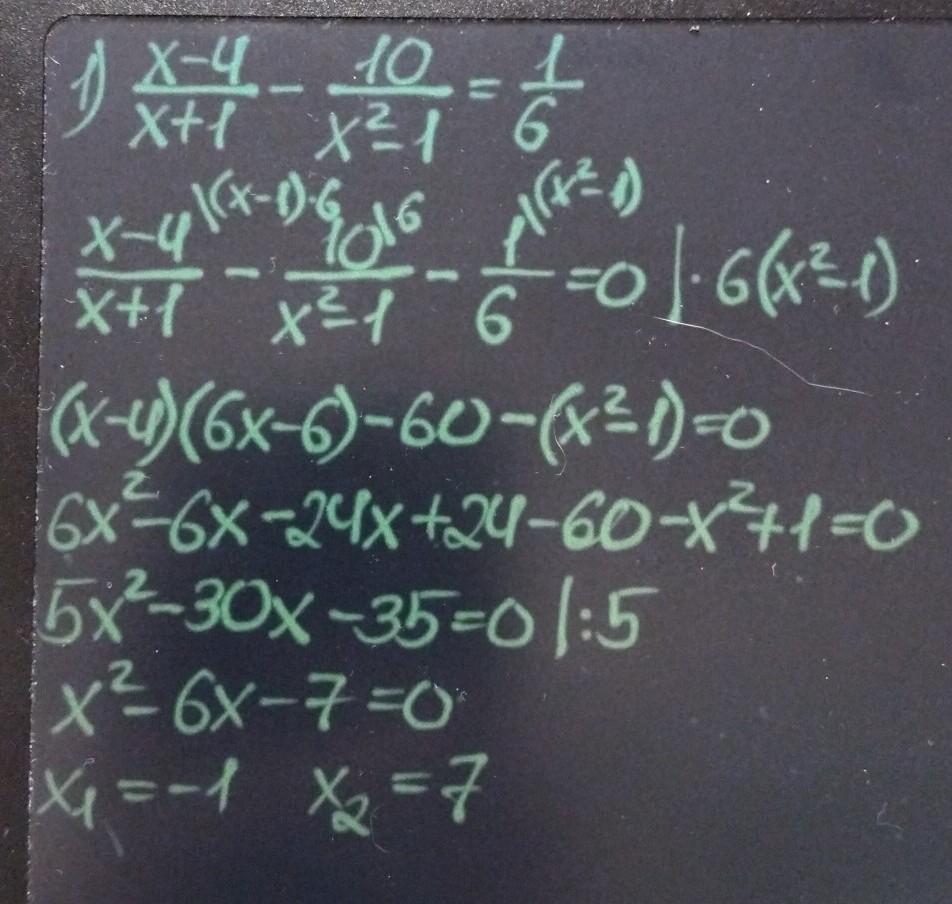 1) (x-4)/(x+1) - 10/(x²-1) = 1/6
(x-4)/(x+1) \(x-1)·6 - 10/(x²-1) \6 - 1/6 \(x²-1) =0 |·6(x²-1)
(x-4)(6x-6)-60-(x²-1)=0
6x²-6x-24x+24-60-x²+1=0
5x²-30x-35=0 |:5
x²-6x-7=0
x₁=-1 x₂=7